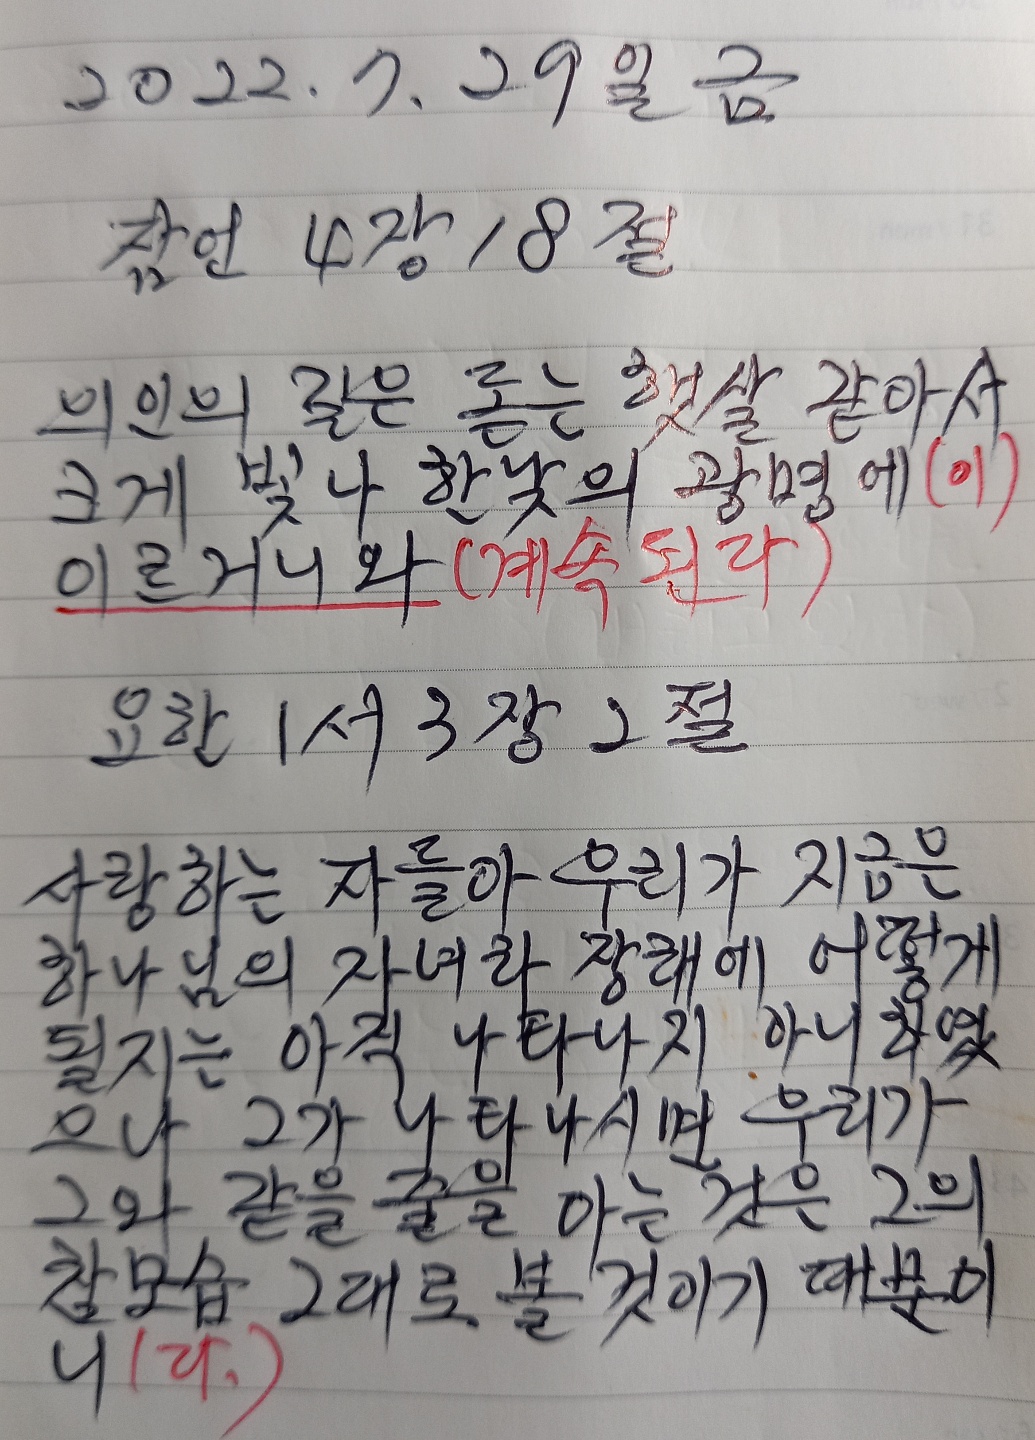 2022. 7. 29일 금
잠언 4장 18절
의인의 길은 돋는 햇살 같아서
크게 빛나 한낮의 광명에(이)
이르거니와(계속된다)
요한1서 3장 2절
사랑하는 자들아 우리가 지금은
하나님의 자녀라 장래에 어떻게
될지는 아직 나타나지 아니하였
으나 그가 나타나시면 우리가
그와 같을 줄을 아는 것은 그의
참모습 그대로 볼 것이기 때문이
니(다.)